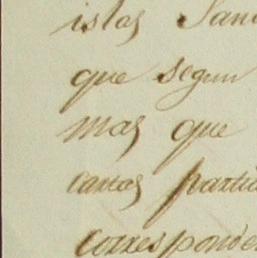 islas San
que segun
mas que
cartas partic
corresponden